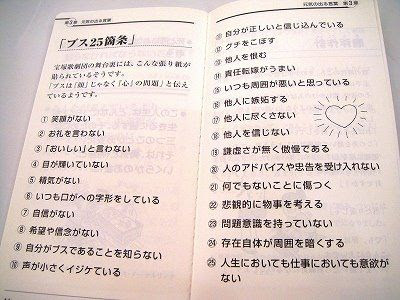 第3章 元気の出る言葉
「ブス25箇条」
宝塚歌劇団の舞台裏には、こんな張り紙が
貼られているそうです。
「ブスは「顔」じゃなく「心」の問題」と伝え
ているようです。
① 笑顔がない
② お礼を言わない
③「おいしい」と言わない
④ 目が輝いていない
⑤ 精気がない
⑥ いつも口がへの字形をしている
⑦ 自信がない
⑧ 希望や信念がない
⑨ 自分がブスであることを知らない
⑩ 声が小さくイジケている
元気の出る言葉 第3章
⑪ 自分が正しいと信じ込んでいる
⑫ グチをこぼす
⑬ 他人を恨む
⑭ 責任転嫁がうまい
⑮ いつも周囲が悪いと思っている
⑯ 他人に嫉妬する
⑰ 他人に尽くさない
⑱ 他人を信じない
⑲ 謙虚さが無く傲慢である
⑳ 人のアドバイスや忠告を受け入れない
㉑ 何でもないことに傷つく
㉒ 悲観的に物事を考える
㉓ 問題意識を持っていない
㉔ 存在自体が周囲を暗くする
㉕ 人生においても仕事においても意欲が
ない